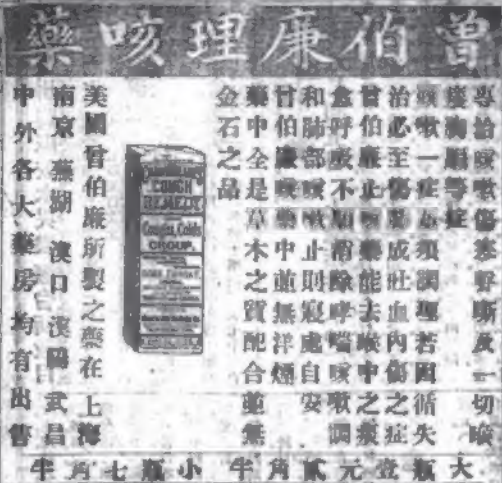 曾伯廉理咳藥
專治咳嗽傷寒聲嘶及一切喉
嚨胸膈等症
咳嗽一症必須調理若因循失
治必至傷肺成吐血內傷之症
甘伯廉止咳藥能去喉中之痰
呼吸不順消除哮喘咳嗽調
和肺部咳嗽止則寢處自安
甘伯廉咳藥中並無洋煙
藥中全是草木之質配合並無
金石之品
CHAMBERLAIN'S
COUGH
REMEDY
Coughs, Colds
CROUP.
SORE THROAT
美國曾伯廉所製之藥在上海
南京 蕪湖 漢口 漢陽 武昌
中外各大藥房均有出售
大瓶壹元貳角半 小瓶七角半